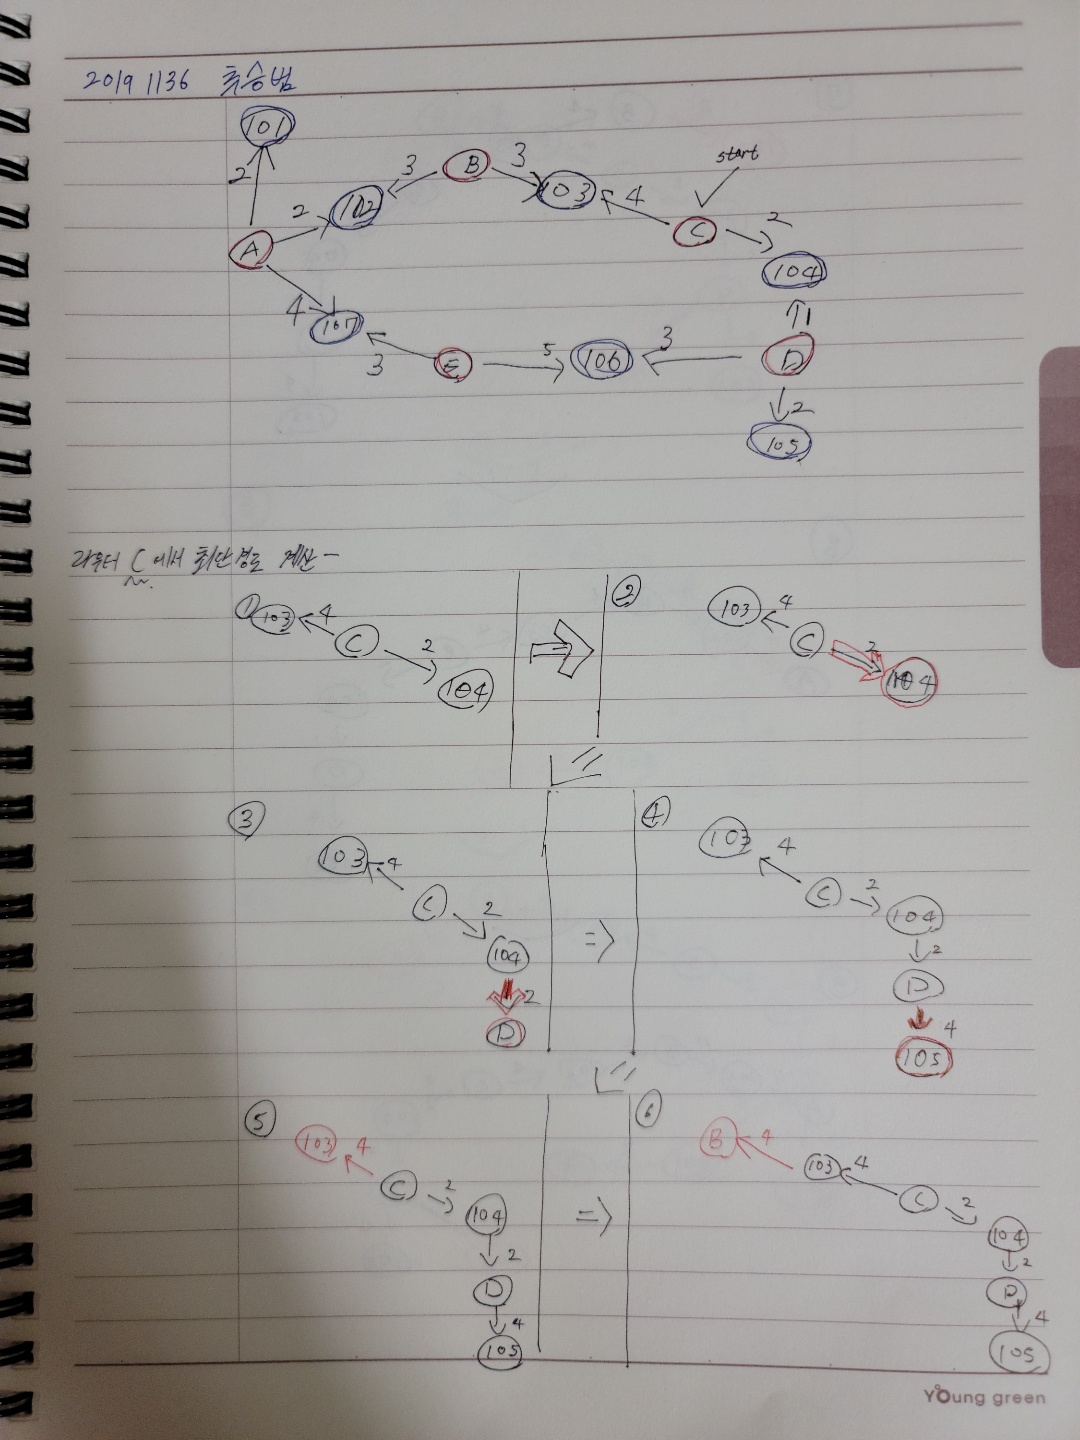 20191136 추승범
101
2
3
B
3
103
4
start
C
2
104
2
102
A
4
107
3
E
5
106
3
D
1
2
105
라우터 C에서 최단경로 계산-
①
103
4
C
2
104
②
103
4
C
2
104
③
103
4
C
2
104
2
D
④
103
4
C
2
104
2
D
4
105
⑤
103
4
C
2
104
2
D
4
105
⑥
B
4
103
4
C
2
104
2
D
4
105
Young green